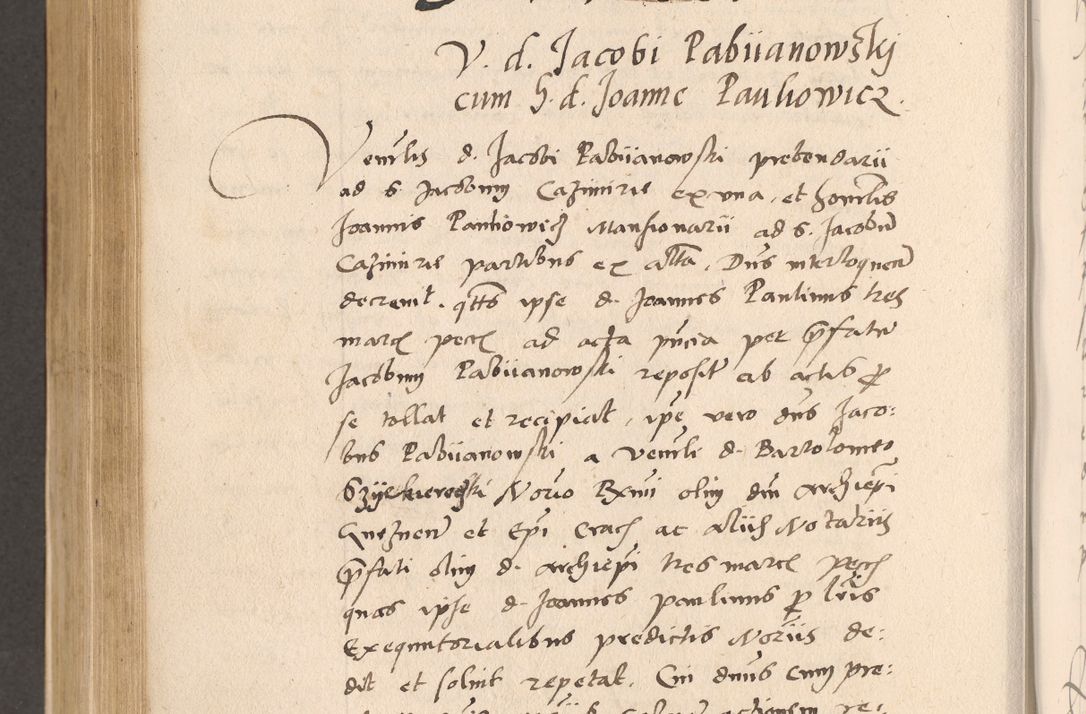 V. d. Jacobi Pabiianowskj
cum h. d. Joanne Pauliowicz.
Venrlis d. Jacobi Pabiianowski prebendarii
ad S. Jacobum Cazimirie ex una, et honrlis
Joannis Pauliowicz Mansionarii ad S. Jacobum
Cazimirie partibus ex alta, Dns interloquen
decrevit. qtts ipse d. Joannes Paulinus tres
marc pecc ad acta pncia per prefatum
Jacobum Pabiianowski reposit ab actis pro
se tollat et recipiat, ipe vero dns Jaco:
bus Pabiianowski a Venrli d. Bartolomeo
Norio Rmi olim dni archiepi
Gneznen et Epi Crac ac aliis Notariis
prefati olim d. archiepi tres marc pecc
quas ipse d. Joannes paulinus pro lris
Exequutorialibus predictis Noriis de:
dit et solvit repetat. Cui dnus cum pre: